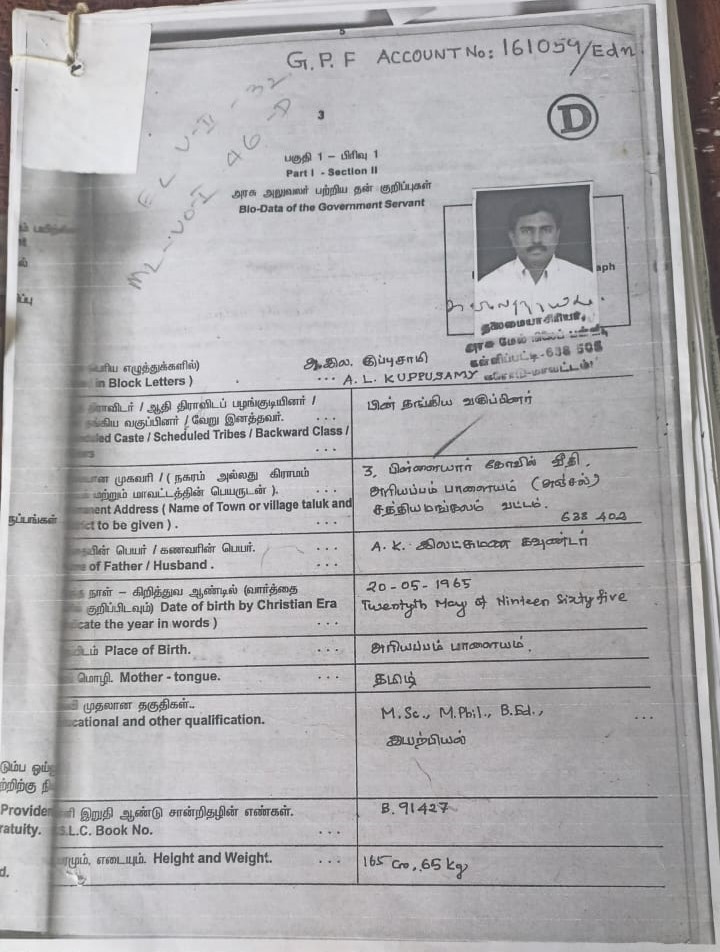 G.P.F ACCOUNT No: 161059/Edn.
EL V-II-32
ML-VO-I 46-D
3
D
பகுதி 1 – பிரிவு 1
Part I - Section II
அரசு அலுவலர் பற்றிய தன் குறிப்புகள்
Bio-Data of the Government Servant
aph
தலைமையாசிரியர்,
அரசு மேல் நிலைப் பள்ளி
கள்ளிப்பட்டி-638 505
ஈரோடு-மாவட்டம்
எழுத்துக்களில்)
in Block Letters )
குப்புசாமி
... A. L. KUPPUSAMY
திராவிடர் / ஆதி திராவிடப் பழங்குடியினர் /
வகுப்பினர் / வேறு இனத்தவர். ...
Caste / Scheduled Tribes / Backward Class /
பின் தங்கிய வகுப்பினர்
முகவரி / ( நகரம் அல்லது கிராமம்
மற்றும் மாவட்டத்தின் பெயருடன் ). ...
Address ( Name of Town or village taluk and
to be given ) . ...
3, பிள்ளையார் கோவில் வீதி,
அரியப்பம் பாளையம் (அஞ்சல்)
சத்தியமங்கலம் வட்டம்.
638 402
நப்பங்கள்
பெயர் / கணவரின் பெயர். ...
of Father / Husband . ...
A. K. இலட்சுமண கவுண்டர்
நாள் – கிறித்துவ ஆண்டில் (வார்த்தை
குறிப்பிடவும்) Date of birth by Christian Era
the year in words ) ...
20-05-1965
Twentyth May of Ninteen Sixty five
Place of Birth. ...
அரியப்பம் பாளையம்.
மொழி. Mother - tongue. ...
தமிழ்
முதலான தகுதிகள்..
and other qualification.
M.Sc., M.Phil., B.Ed., ...
இயற்பியல்
இறுதி ஆண்டு சான்றிதழின் எண்கள்.
S.L.C. Book No. ...
B. 91427
எடையும். Height and Weight. ...
165 Cm, 65 kg